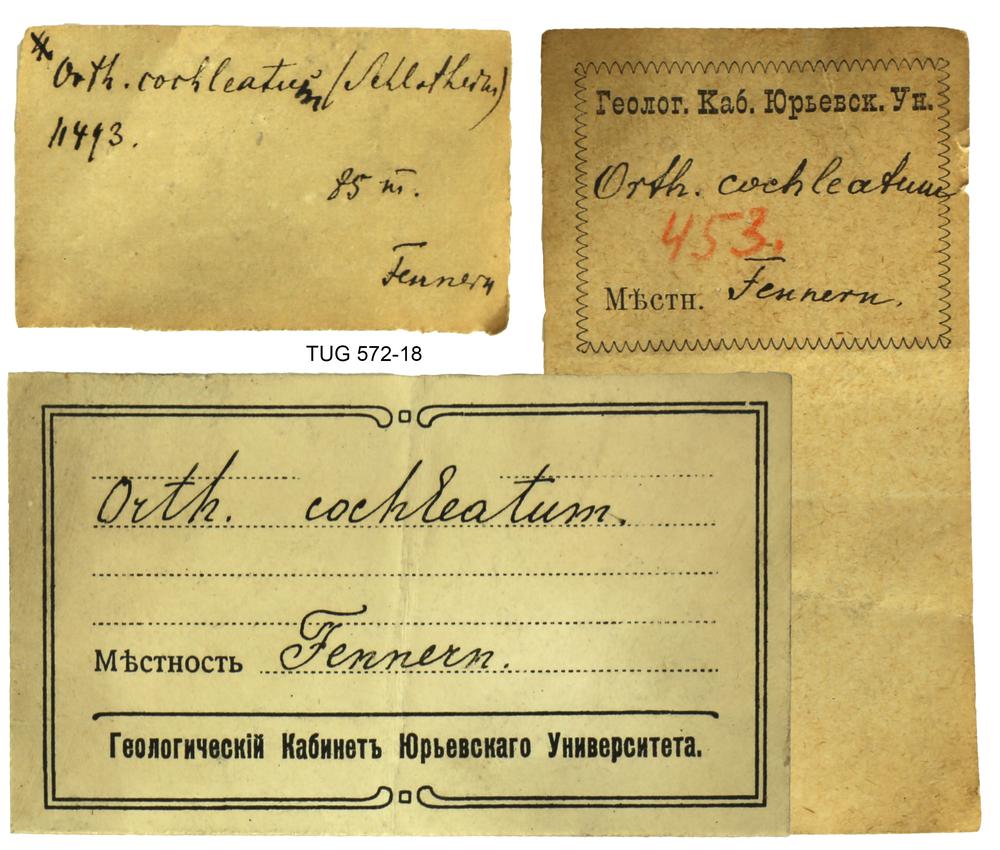 * Orth. cochleatum (Schlotheim)
11493.
85 m.
Fennern
Геолог. Каб. Юрьевск. Ун.
Orth. cochleatum
453.
Мѣстн. Fennern.
TUG 572-18
Orth. cochleatum.
Мѣстность Fennern.
Геологическій Кабинетъ Юрьевскаго Университета.